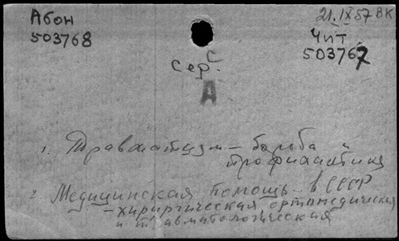 Абон
503768
21.IX 57 ВК
Чит
503767
сер. С
А
1. Травматизм – борьба и
профилактика
2. Медицинская помощь в СССР
– хирургическая ортопедическая
и травматологическая